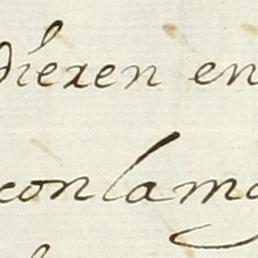 dieren en
con la mo